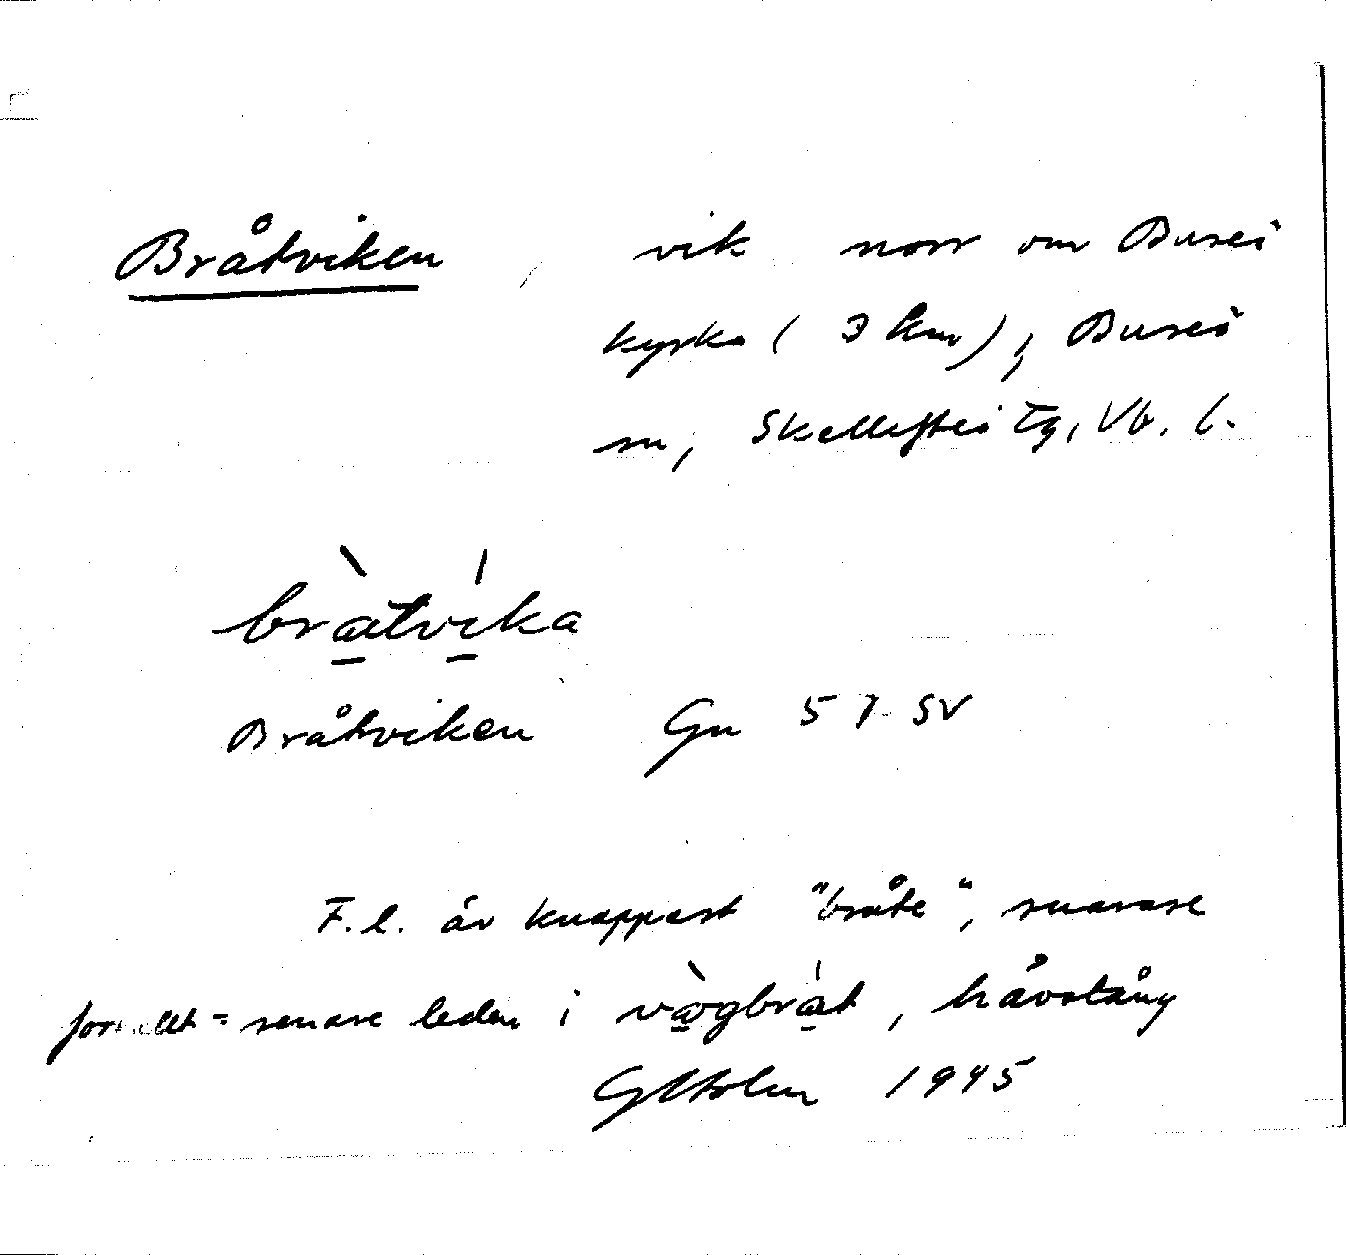 Bråtviken, vik norr om Bureå
kyrka (3 km), Bureå
sn, Skellefteå tg, Vb. l.
bràtvíka
Bråtviken Gn 57 SV
F.l. är knappast "bråte", snarare
formellt = senare leden i vàgbràt, havstång
GHolm 1945